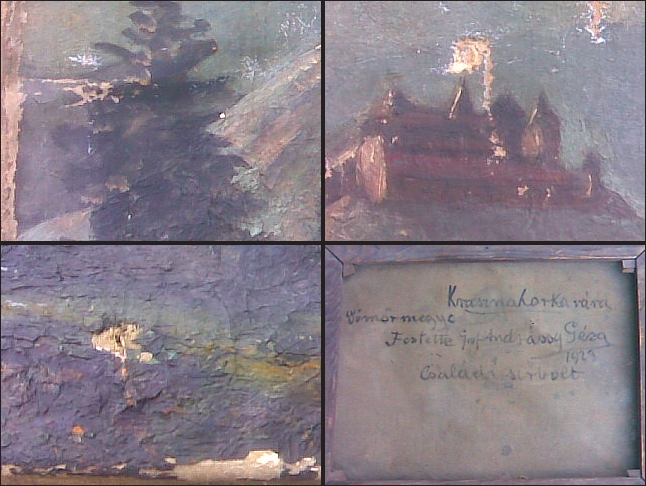 Krasznahorka vára
Gömörmegye
Festette gróf Andrássy Géza
1923
Családi sírbolt